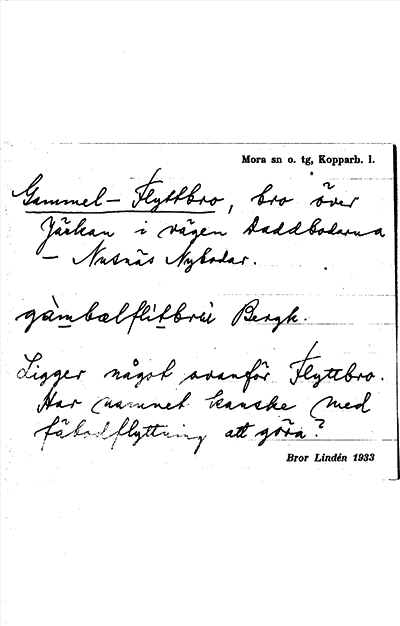 Mora sn o. tg, Kopparb. l.
Gammel-Flyttbro, bro över
i vägen Saddbodarna
- Nusnäs Nybodar.
Bergk.
Ligger något ovanför Flyttbro.
Har namnet kanske med
fäbodflyttning att göra?
Bror Lindén 1933